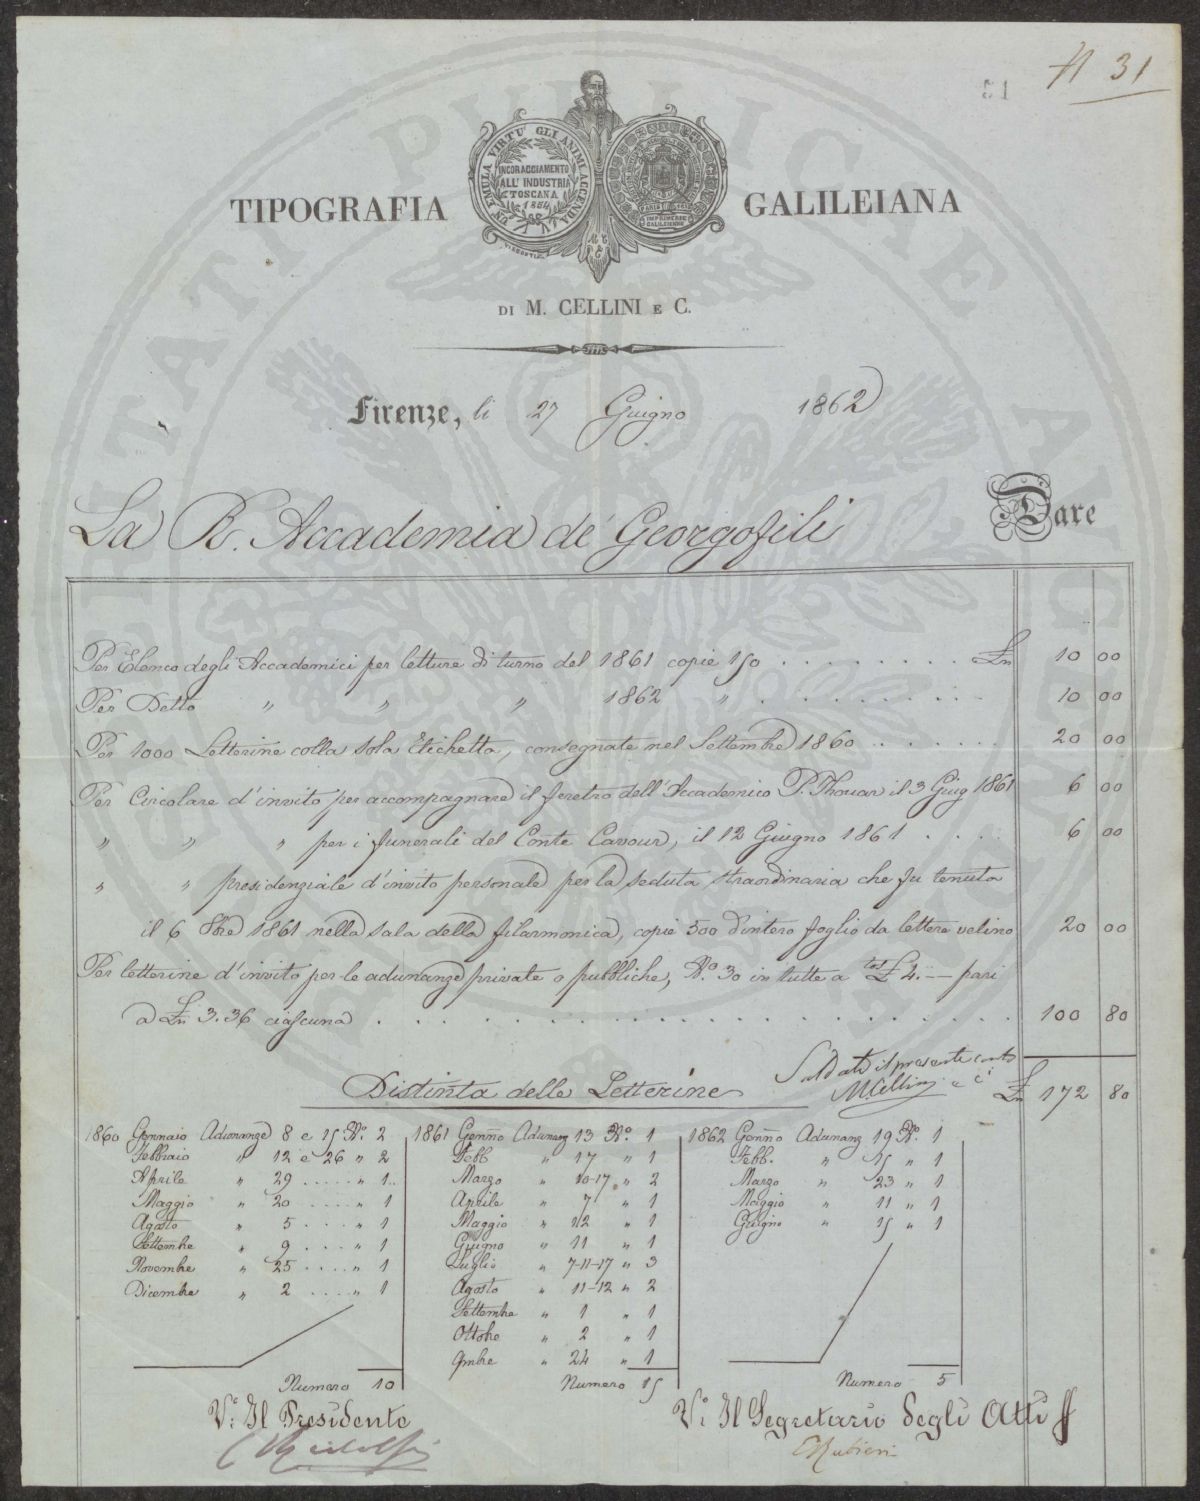 N 31
13
UN EMULA VIRTU' GLI ANIMI ACCENDA
INCORAGGIAMENTO
ALL' INDUSTRIA
TOSCANA
1854
IMPRIMERIE
GALILEIENNE
TIPOGRAFIA GALILEIANA
DI M. CELLINI E C.
Firenze, li 27 Giugno 1862
La R. Accademia de' Georgofili Dare
Per Elenco degli Accademici per letture di turno del 1861 copie 150 . . . . . . . . £n 10 00
Per Detto " " " 1862 " . . . . . . . . 10 00
Per 1000 Letterine colla sola Etichetta, consegnate nel Settembre 1860 . . . . . . 20 00
Per Circolare d'invito per accompagnare il feretro dell'Accademico P. Thouar il 3 Giug 1861 6 00
" " " per i funerali del Conte Cavour, il 12 Giugno 1861 . . . . 6 00
" " presidenziale d'invito personale per la seduta straordinaria che fu tenuta
il 6 8bre 1861 nella sala della filarmonica, copie 500 d'intero foglio da lettere velino 20 00
Per letterine d'invito per le adunanze private o pubbliche, N.o 30 in tutte a tos £ 4. — pari
a £n 3.36 ciascuna . . . . . . . . . . . . . . . . . . 100 80
Saldato il presente conto
M. Cellini e C.i
£n 172 80
Distinta delle Letterine
1860 Gennaio Adunanze 8 e 15 N.o 2
Febbraio " 12 e 26 " 2
Aprile " 29 ..... " 1
Maggio " 20 .... " 1
Agosto " 5 .... " 1
Settembre " 9 .... " 1
Novembre " 25 .... " 1
Dicembre " 2 .... " 1
Numero 10
1861 Genno Adunanz 13 N.o 1
Febb " 17 " 1
Marzo " 10-17 " 2
Aprile " 7 " 1
Maggio " 12 " 1
Giugno " 11 " 1
Luglio " 7-11-17 " 3
Agosto " 11-12 " 2
Settembre " 1 " 1
Ottobre " 2 " 1
9mbre " 24 " 1
Numero 15
1862 Genno Adunanz 19 N.o 1
Febb. " 15 " 1
Marzo " 23 " 1
Maggio " 11 " 1
Giugno " 15 " 1
Numero 5
V.o Il Presidente
C Ridolfi
V.o Il Segretario degli Atti ff
E Rubieri